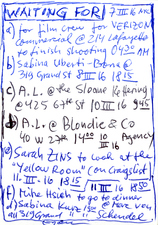 WAITING FOR 7 III 16 NYC
a) for film crew for VERIZON
commercial @ 214 Lafayette
to finish shooting 04:30 AM
b) Sabina Uberti-Bona @
319 Grand St 8 III 16 18:15
c) A.L. @ the Sloane Kettering
@ 425 67th St 10 III 16 945
d) A.L. @ Blondie & Co
40 W 27th 14:00 10 III 16 Agency
e) Sarah ZINS to look at the
"Yellow Room" (on Craigslist)
11. III - 16 18:15 11 III 16 1850
f) Mike Hsieh to go to dinner
g) Sabina @ take van
319 Grand Schendel